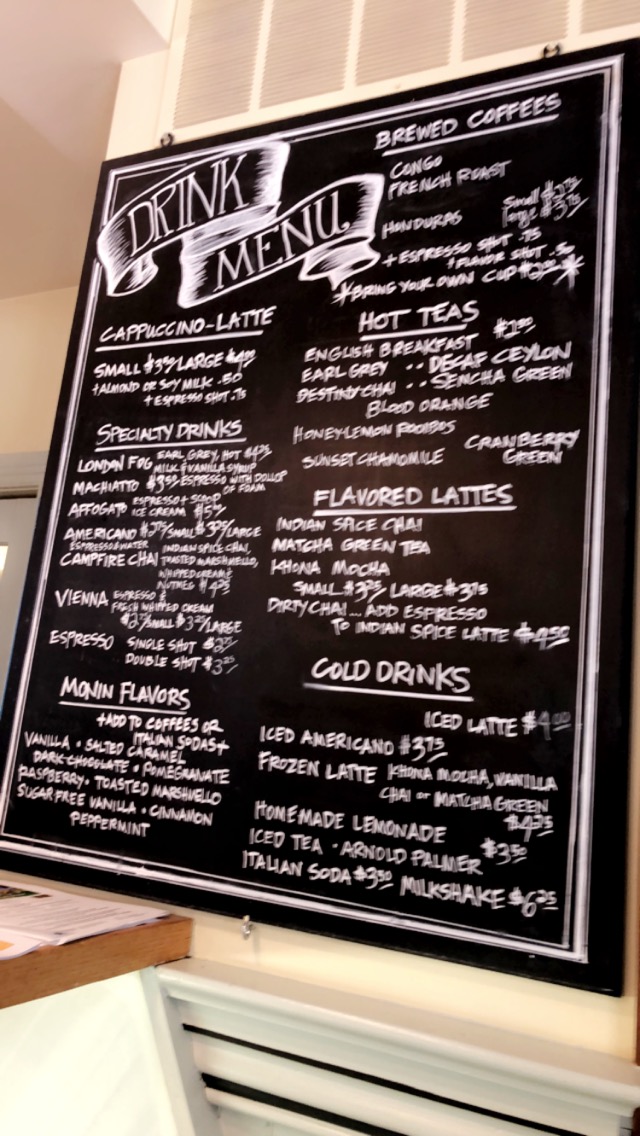 DRINK
MENU
BREWED COFFEES
CONGO
FRENCH ROAST
HONDURAS
Small $2.75
large $3.75
+ ESPRESSO SHOT .75
+ FLAVOR SHOT .50
*BRING YOUR OWN CUP *
CAPPUCCINO-LATTE
SMALL LARGE $4.00
+ALMOND OR SOY MILK .50
+ ESPRESSO SHOT .75
SPECIALTY DRINKS
LONDON FOG EARL GREY, HOT $4.25
MILK & VANILLA SYRUP
MACHIATTO ESPRESSO WITH DOLLOP
OF FOAM
AFFOGATO ESPRESSO + SCOOP
ICE CREAM
AMERICANO $2.75/SMALL $3.25/LARGE
ESPRESSO & WATER
CAMPFIRE CHAI INDIAN SPICE CHAI,
TOASTED MARSHMELLO,
WHIPPED CREAM &
NUTMEG $4.25
VIENNA ESPRESSO &
FRESH WHIPPED CREAM
$2.75/SMALL $3.25/LARGE
ESPRESSO SINGLE SHOT
DOUBLE SHOT $3.25
MONIN FLAVORS
+ADD TO COFFEES OR
ITALIAN SODAS+
VANILLA • SALTED CARAMEL
DARK CHOCOLATE • POMEGRANATE
RASPBERRY • TOASTED MARSHMELLO
SUGAR FREE VANILLA • CINNAMON
PEPPERMINT
HOT TEAS
ENGLISH BREAKFAST
EARL GREY • • DECAF CEYLON
DESTINY CHAI • • SENCHA GREEN
BLOOD ORANGE
HONEY-LEMON ROOIBOS
SUNSET CHAMOMILE
CRANBERRY
GREEN
FLAVORED LATTES
INDIAN SPICE CHAI
MATCHA GREEN TEA
KHONA MOCHA
SMALL $3.25/ LARGE $3.75
DIRTY CHAI... ADD ESPRESSO
TO INDIAN SPICE LATTE $4.50
COLD DRINKS
ICED LATTE $4.00
ICED AMERICANO $3.75
FROZEN LATTE KHONA MOCHA, VANILLA
CHAI or MATCHA GREEN
$4.75
HOMEMADE LEMONADE
ICED TEA • ARNOLD PALMER $3.50
ITALIAN SODA $3.50 MILKSHAKE $6.25